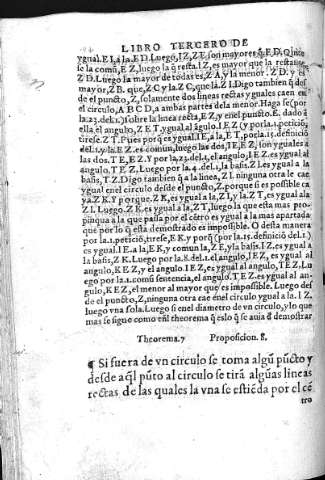 LIBRO TERCERO DE
ygual. E I, a la E D. Luego, I Z, Z E, son mayores q̃, E D. Quite
se la comũ, E Z, luego la q̃ resta. I Z, es mayor que la restante.
Z D. Luego la mayor de todas es, Z A, y la menor. Z D. y es
mayor, Z B. que, Z C, y la Z C, que la Z I. Digo tambien q̃ des
de el puncto, Z, solamente dos lineas rectas yguales caen en
el circulo, A B C D, a ambas partes dela menor. Haga se (por
la. 23. del. 1.) sobre la linea recta, E Z, y en el punto E. dado a
ella el angulo, Z E T, ygual al ãgulo. I E Z (y por la. 1. peticiõ,
tirese. Z T. Pues porq̃ es ygual. I E, a la, E T, por la. 15. definiciõ
del. 1. y la E Z. es comun, luego las dos, I E, E Z, son yguales a
las dos. T E, E Z. Y por la. 23. del. 1. el angulo, I E Z. es ygual al
angulo. T E Z. Luego por la. 4. del. 1. la basis, Z I. es ygual a la
basis, T Z. Digo tambien q̃ a la linea, Z I. ninguna otra le cae
ygual en el circulo desde el puncto, Z. porque si es possible ca
ya. Z K. Y porque. Z K. es ygual a la, Z I, y la, Z T, es ygual ala
Z I. Luego. Z K. es ygual a la, Z T, luego la que esta mas pro-
pinqua a la que passa por el cẽtro es ygual a la mas apartada
que por lo q̃ esta demostrado es impossible. O desta manera
por la. 1. peticiõ, tirese, E K. y por q̃ (por la. 15. definiciõ del. 1.)
es ygual. I E. a la, E K, y comun la, Z E, y la basis. I Z. es ygual a
la basis, Z K. Luego por la. 8. del. 1. el angulo, I E Z, es ygual al
angulo, K E Z, y el angulo. I E Z, es ygual al angulo, T E Z. Lu
ego por la. 1. comũ sentencia, el angulo. T E Z. es ygual al an-
gulo, K E Z, el menor al mayor que es impossible. Luego des
de el puncto, Z, ninguna otra cae en el circulo ygual a la. I Z,
luego vna sola. Luego si en el diametro de vn circulo, y lo que
mas se sigue como en el theorema q̃ es lo q̃ se auia ð demostrar
Theorema. 7 Proposicion. 8.
¶ Si fuera de vn circulo se toma algũ pũcto y
desde aq̃l pũto al circulo se tirã algũas lineas
rectas de las quales la vna se estiẽda por el cẽ
tro